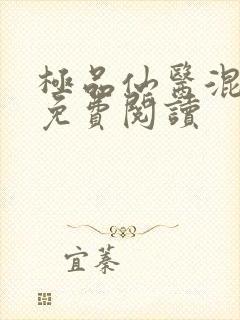 極品仙醫混
免費閱讀
宜蓁